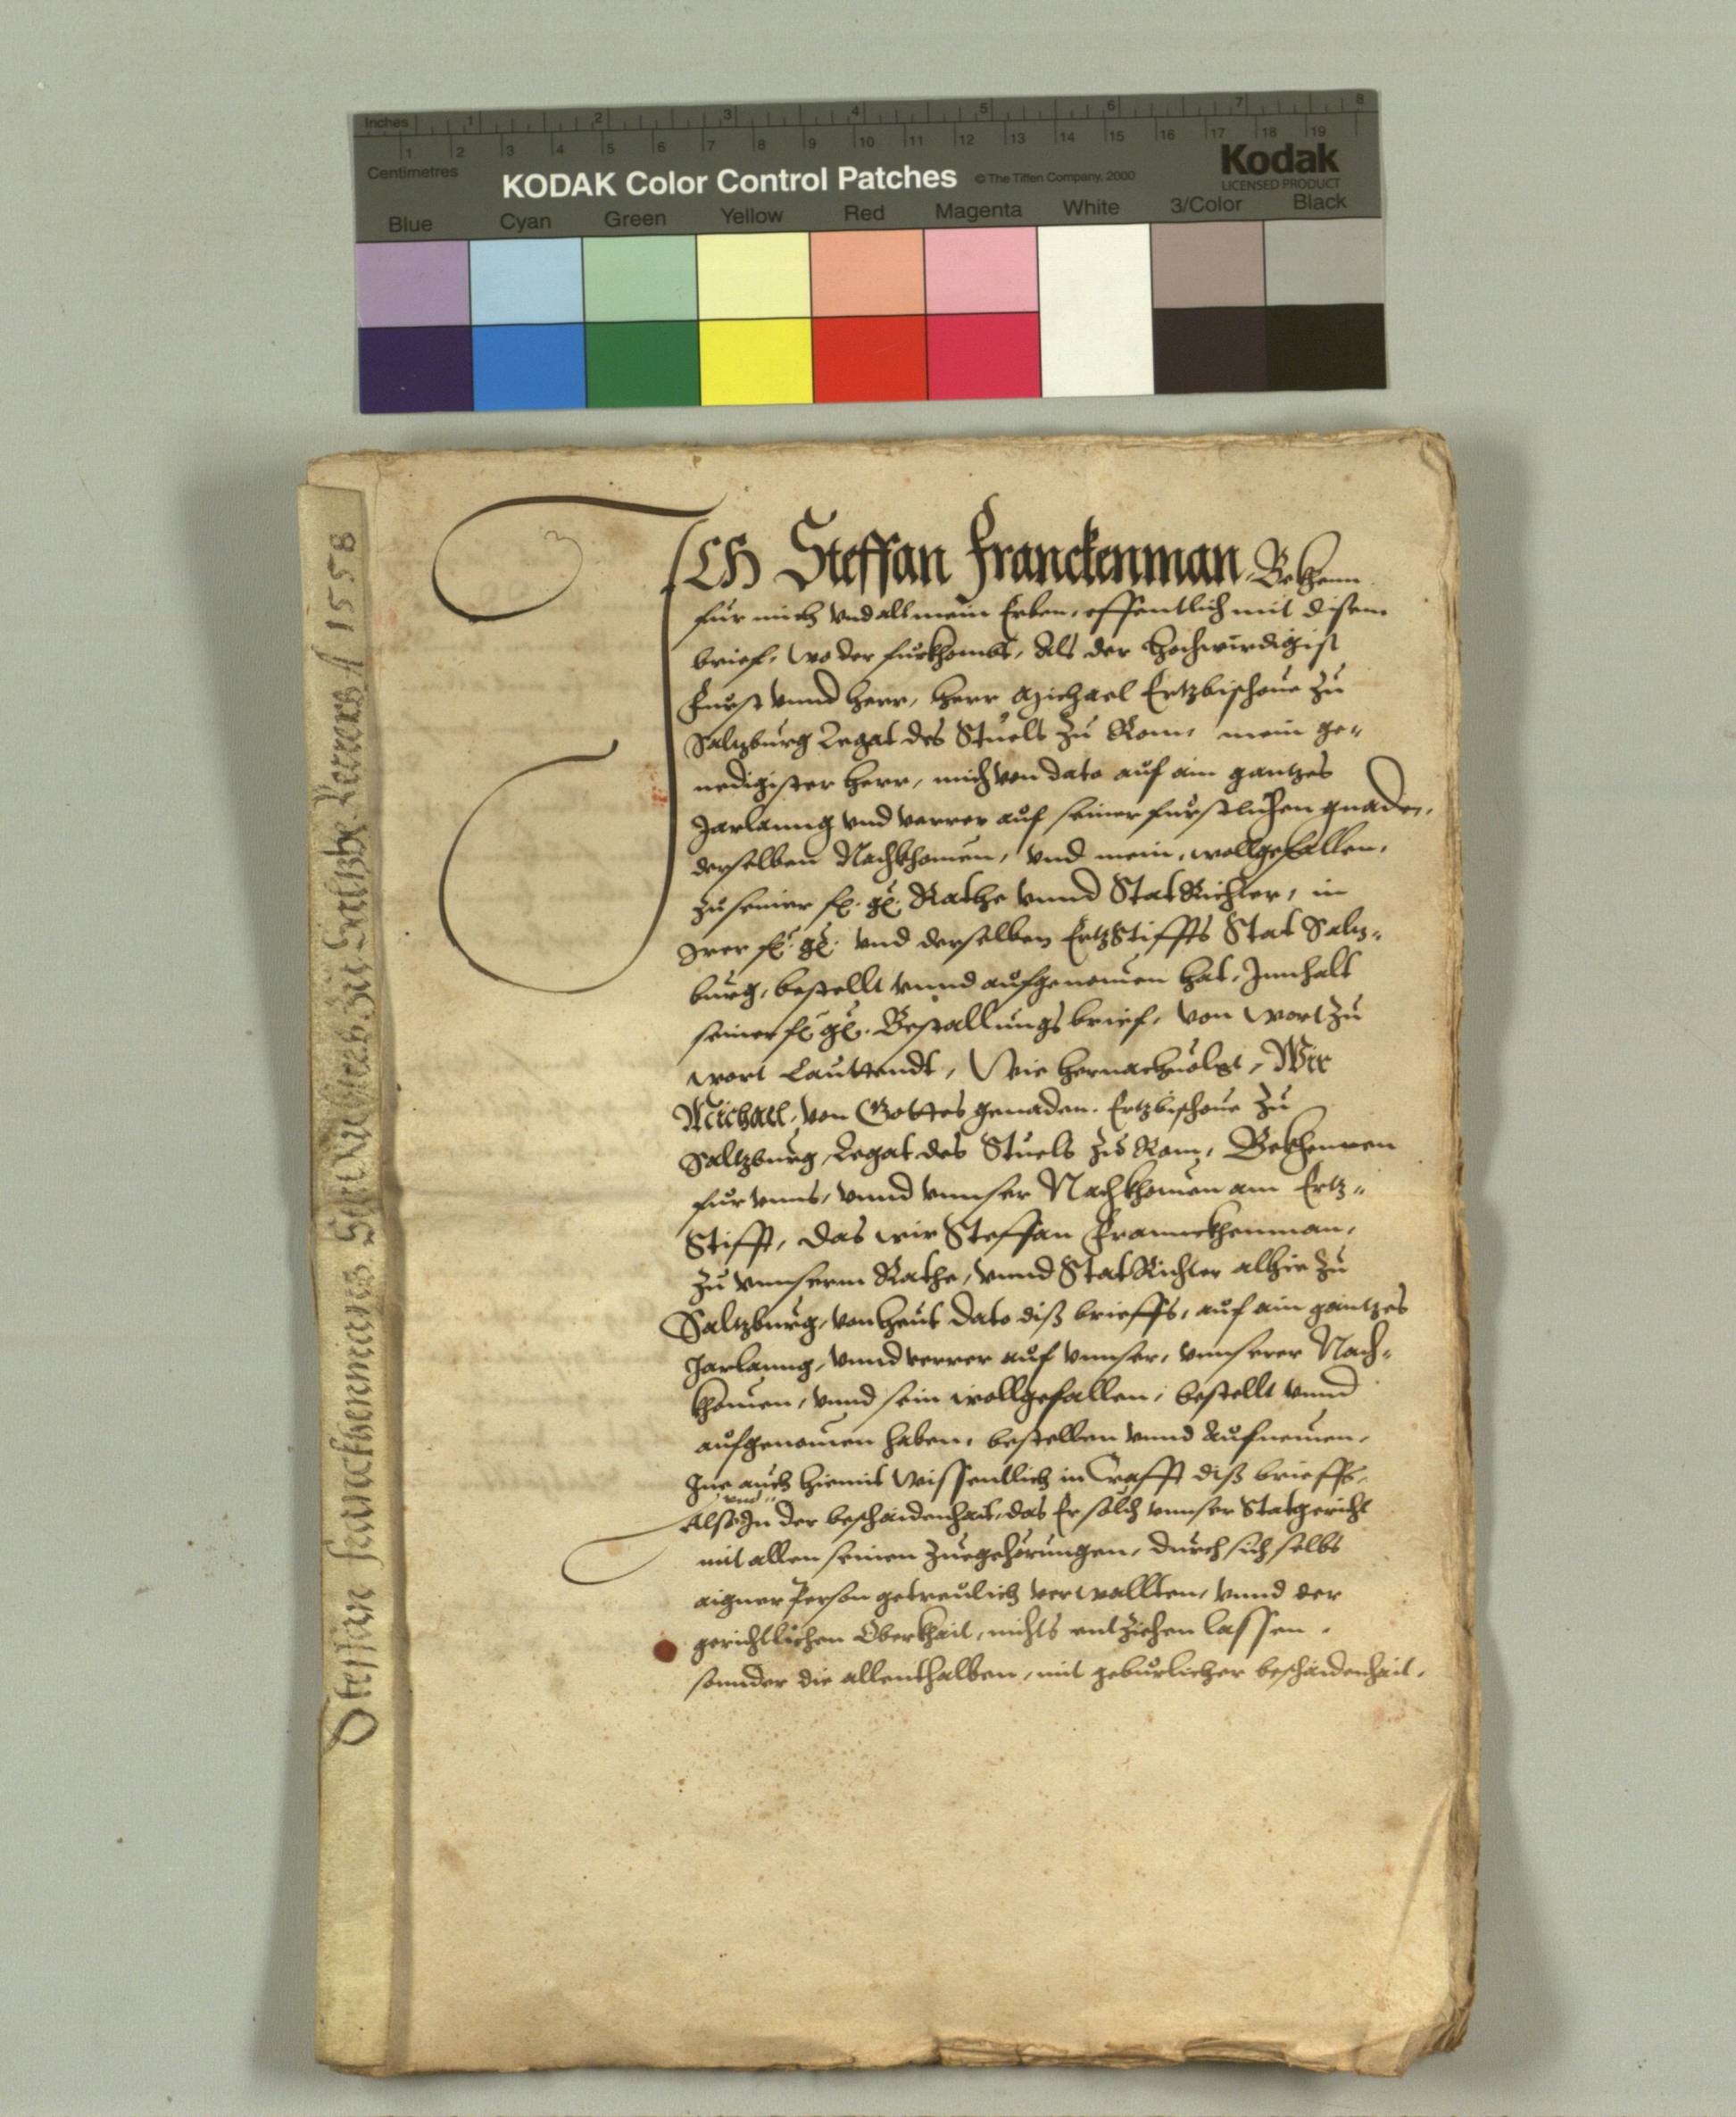 Inches 1 2 3 4 5 6 7 8
1 2 3 4 5 6 7 8 9 10 11 12 13 14 15 16 17 18 19
Centimetres
KODAK Color Control Patches © The Tiffen Company, 2000
Kodak
LICENSED PRODUCT
Blue Cyan Green Yellow Red Magenta White 3/Color Black
Steffan Franckhenmans Stat zu Saltzb. Revers 1558
ICH Steffan Franckenman, Bekhenn
für mich vnd all mein Erben, offentlich mit disem
brief, wo der fürkhombt, Als der Hochwirdigist
Fürst vnnd herr, herr Michael Ertzbischoue zu
Saltzburg Legat des Stuels zu Rom, mein ge-
nedigister herr, mich von dato auf ain gantzes
Jarlanng vnd verrer auf seiner fürstlichen gnaden,
derselben Nachkhomen, vnd mein, wollgefallen,
zu seiner fr. gn. Rathe vnnd StatRichter, in
Irer fr. gn. vnd derselben ErtzStiffts Stat Saltz-
burg, bestellt vnnd aufgenomen hat, Innhalt
seiner fr. gn. Bestallungs brief, von wort zu
wort Lauttendt, Wie hernachuolgt, Wir
Michael, von Gottes genaden, Ertzbischoue zu
Saltzburg, Legat des Stuels zu Rom, Bekhennen
für vnns, vnnd vnnser Nachkhomen am Ertz-
Stifft, das wir Steffan Franneckhenman,
zu vnnserm Rathe, vnnd StatRichter alhie zu
Saltzburg, von heut dato diß brieffs, auf ain gantzes
Jarlanng, vnnd verrer auf vnnser, vnnserer Nach-
khomen, vnnd sein wollgefallen, bestellt vnnd
aufgenomen haben, bestellen vnnd Aufnemen,
Ine auch hiemit Wissentlich in Crafft diß brieffs,
vnd
Also In der beschaidenhait, das Er solch vnnser Statgericht
mit allen seinen zuegehörungen, durch sich selbs
aigner Person getreulich verwallten, vnnd der
gerichtlichen Oberkhait, nichts entziehen lassen,
sonnder die allenthalben, mit gebürlicher beschaidenhait,